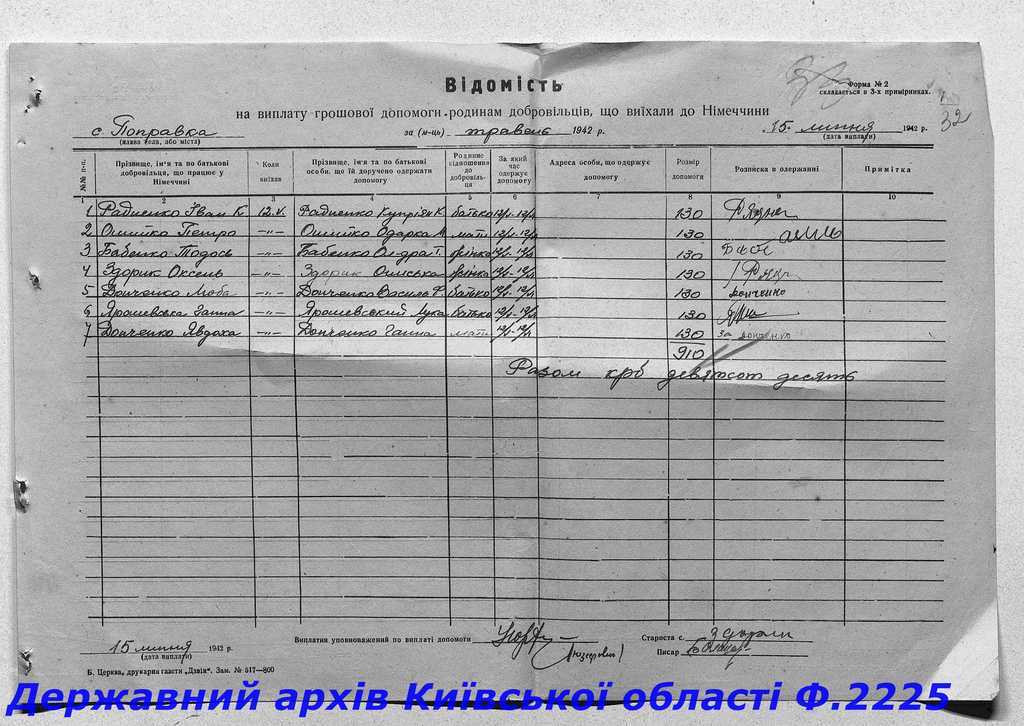 Відомість
Форма № 2
складається в 3-х примірниках.
32
на виплату грошової допомоги родинам добровільців, що виїхали до Німеччини
с Поправка за (м-ць) травень 1942 р. 15 липня 1942 р.
(назва села, або міста) (дата виплати)
№№ п-п. Прізвище, ім'я та по батькові добровільця, що працює у Німеччині Коли виїхав Прізвище, ім'я та по батькові особи, що їй доручено одержати допомогу Родинне відношення до добровільця За який час одержує допомогу Адреса особи, що одержує допомогу Розмір допомоги Розписка в одержанні Примітка
1 2 3 4 5 6 7 8 9 10
1 Радченко Іван К 12.V. Радченко Купріян К. батько 130
2 Ошийко Петро -"- Ошийко Одарка мати 130
3 Бабенко Тодось -"- Бабенко Ол-дра Т. жінка 130
4 Здорик Оксень -"- Здорик жінка 130
5 Донченко -"- Донченко Василь батько 130 Донченко
6 Ярошевська Ганна -"- Ярошевський Лука батько 130
7 Донченко Явдоха -"- Донченко Ганна мати 130 за
910
Разом крб девятсот десять
Виплатив уповноважений по виплаті допомоги
Староста с.
15 липня 1942 р.
(дата виплати)
Писар
Б. Церква, друкарня газети „Дзвін". Зам. № 547—800
Державний архів Київської області Ф.2225